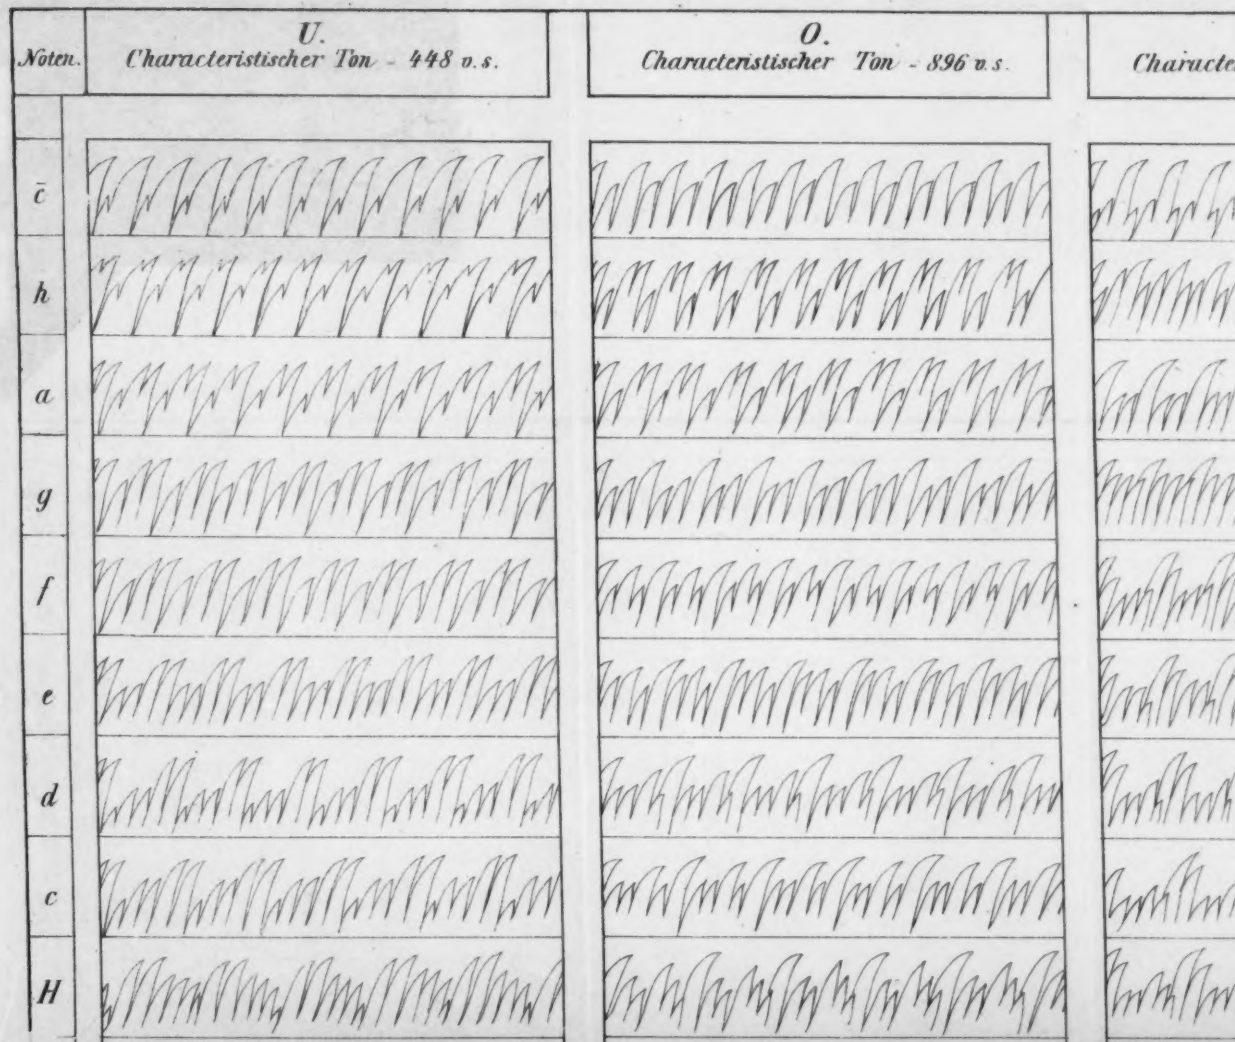 Noten.
U.
Characteristischer Ton - 448 v.s.
O.
Characteristischer Ton - 896 v.s.
Characte
c̄
h
a
g
f
e
d
c
H